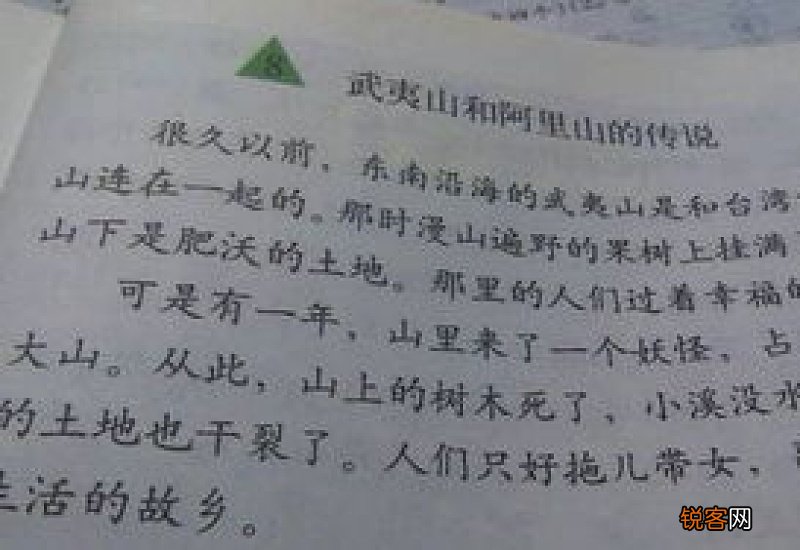 8
武夷山和阿里山的传说
很久以前,东南沿海的武夷山是和台湾
山连在一起的。那时漫山遍野的果树上挂满
山下是肥沃的土地。那里的人们过着幸福的
可是有一年,山里来了一个妖怪,占
大山。从此,山上的树木死了,小溪没水
的土地也干裂了。人们只好拖儿带女,
生活的故乡。
锐客网